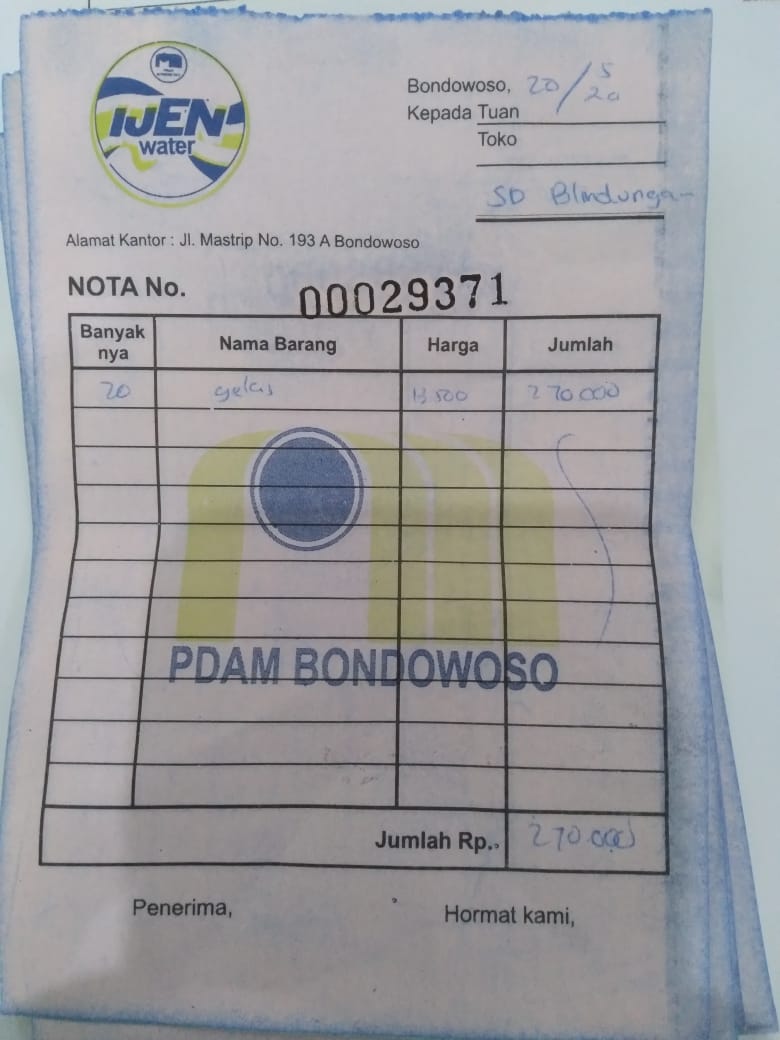 IJEN
water
Bondowoso, 20/5/20
Kepada Tuan
Toko
SD Blindungan
Alamat Kantor : Jl. Mastrip No. 193 A Bondowoso
NOTA No. 00029371
Banyak nya Nama Barang Harga Jumlah
20 gelas 13.500 270.000
PDAM BONDOWOSO
Jumlah Rp. 270.000
Penerima, Hormat kami,